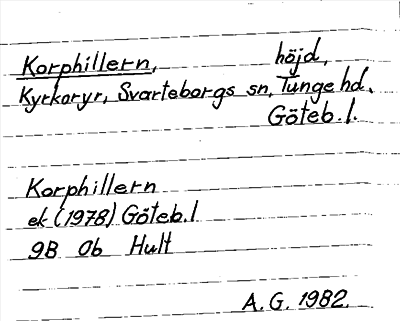 Korphillern, höjd,
Kyrkoryr, Svarteborgs sn, Tunge hd.
Göteb. l.
Korphillern
ek (1978) Göteb. l
9B 0b Hult
A. G. 1982.